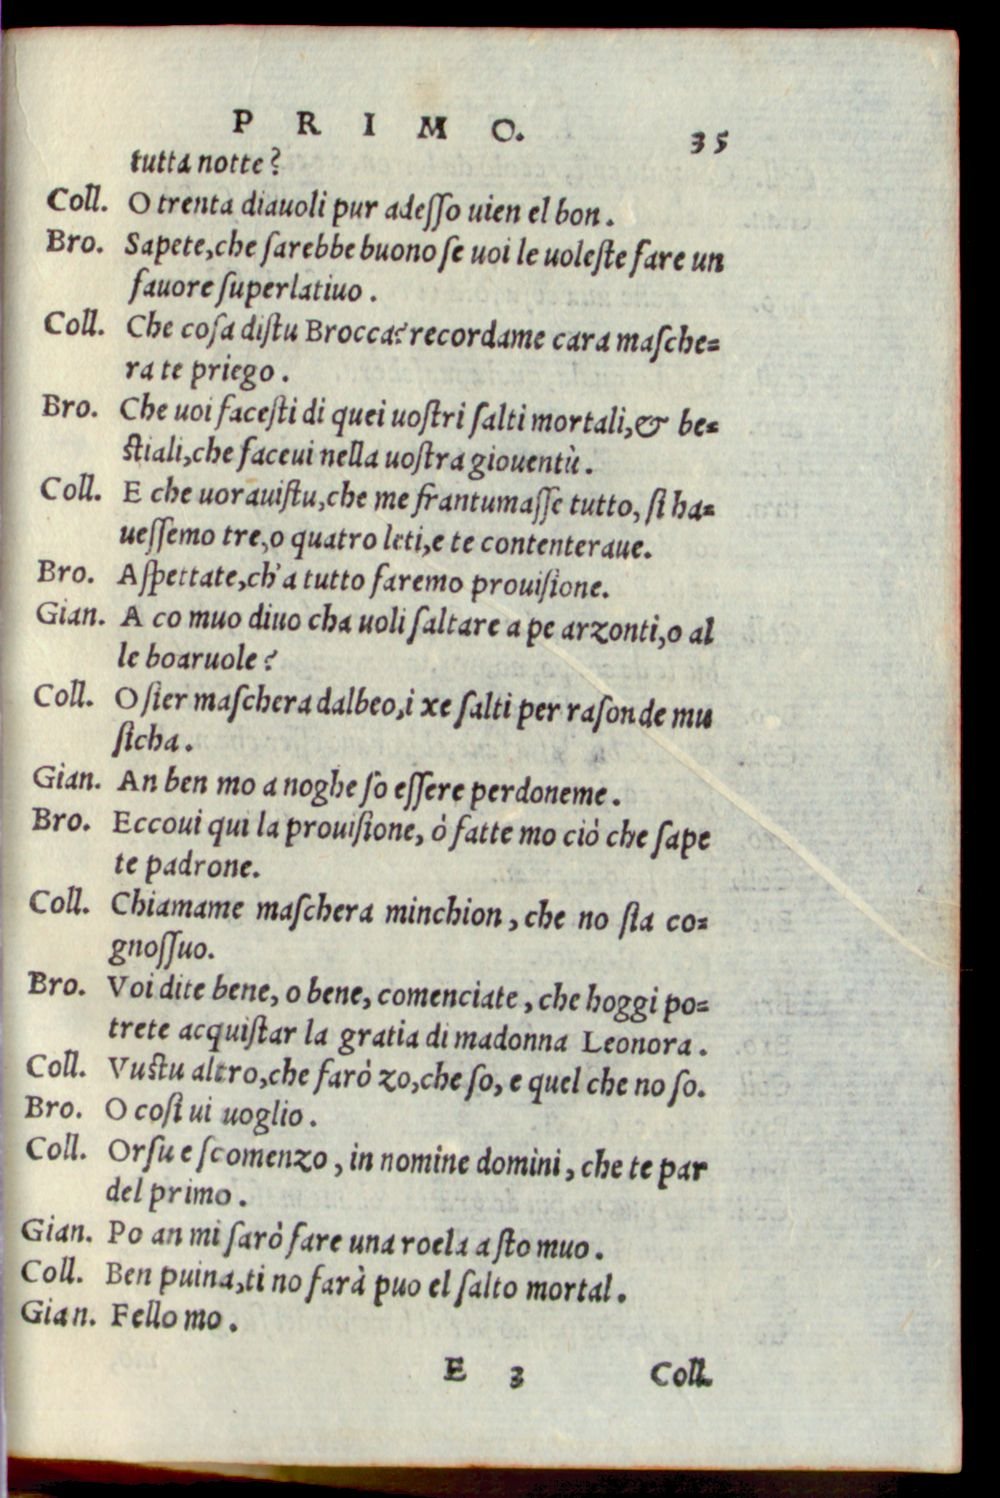 P R I M O. 35
tutta notte?
Coll. O trenta diauoli pur adeſſo uien el bon.
Bro. Sapete, che ſarebbe buono ſe uoi le uoleſte fare un
fauore ſuperlatiuo.
Coll. Che coſa diſtu Brocca? recordame cara maſche=
ra te priego.
Bro. Che uoi faceſti di quei uoſtri ſalti mortali, & be=
ſtiali, che faceui nella uoſtra giouentù.
Coll. E che uorauiſtu, che me frantumaſſe tutto, ſi ha=
ueſſemo tre, o quatro leti, e te contenteraue.
Bro. Aſpettate, ch'a tutto faremo prouiſione.
Gian. A co muo diuo cha uoli ſaltare a pe arzonti, o al
le boaruole?
Coll. O ſier maſchera dalbeo, i xe ſalti per raſon de mu
ſicha.
Gian. An ben mo a noghe ſo eſſere perdoneme.
Bro. Eccoui qui la prouiſione, ò fatte mo ciò che ſape
te padrone.
Coll. Chiamame maſchera minchion, che no ſia co=
gnoſſuo.
Bro. Voi dite bene, o bene, comenciate, che hoggi po=
trete acquiſtar la gratia di madonna Leonora.
Coll. Vuſtu altro, che farò zo, che ſo, e quel che no ſo.
Bro. O coſi ui uoglio.
Coll. Orſu e ſcomenzo, in nomine domini, che te par
del primo.
Gian. Po an mi ſarò fare una roela a ſto muo.
Coll. Ben puina, ti no farà puo el ſalto mortal.
Gian. Fello mo.
E 3 Coll.